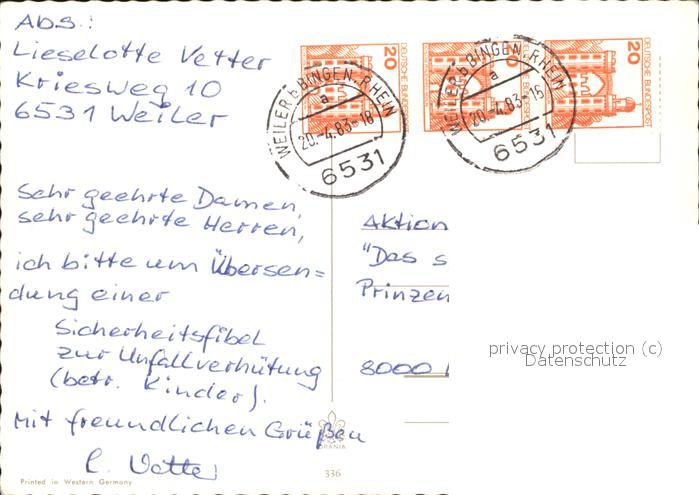 Abs.:
Lieselotte Vetter
Kriesweg 10
6531 Weiler
20
DEUTSCHE BUNDESPOST
20
DEUTSCHE BUNDESPOST
WEILER b BINGEN, RHEIN
a
20.-4.83-18
6531
WEILER b BINGEN, RHEIN
a
20.-4.83-15
6531
Sehr geehrte Damen,
sehr geehrte Herren,
ich bitte um Übersen=
dung einer
Sicherheitsfibel
zur Unfallverhütung
(betr. Kinder).
Mit freundlichen Grüßen
L. Vetter
Aktion
"Das s
Prinzen
8000
privacy protection (c)
Datenschutz
KRANIA
336
Printed in Western Germany